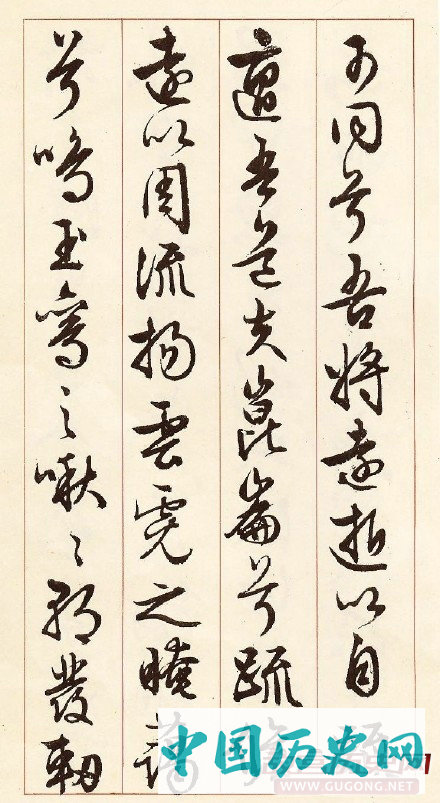 可同兮吾將遠逝以自
邅吾道夫崑崙兮
遠以周流揚雲霓之晻
兮鳴玉鸞之啾〻朝發軔
中国历史网
WWW.GUGONG.NET